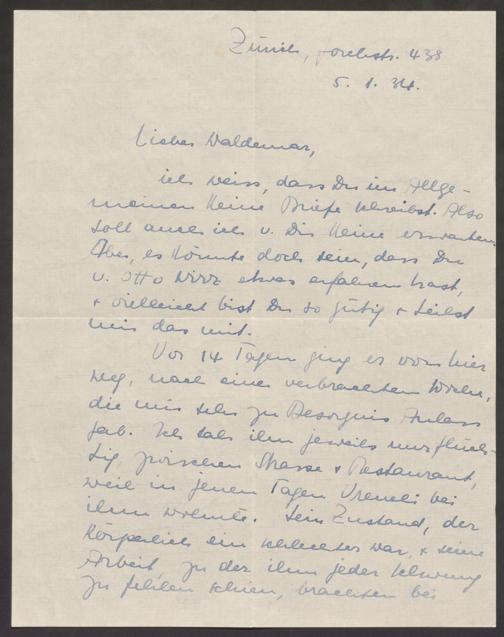 Zürich, Forchstr. 438
5. 1. 34.
Lieber Waldemar,
ich weiss, dass Du im Allge-
meinen keine Briefe schreibst. Also
soll auch ich v. Dir keine erwarten.
Aber, es könnte doch sein, dass Du
v. Otto Wirz etwas erfahren hast,
+ vielleicht bist Du so gütig + teilst
mir das mit.
Vor 14 Tagen ging er von hier
weg, nach einer verbrachten Woche,
die mir sehr zu Besorgnis Anlass
gab. Ich sah ihn jeweils nur flüch-
tig, zwischen Strasse + Restaurant,
weil in jenen Tagen Vreneli bei
ihm wohnte. Sein Zustand, der
körperlich ein schlechter war, + seine
Arbeit, zu der ihm jeder Schwung
zu fehlen schien, brachten bei